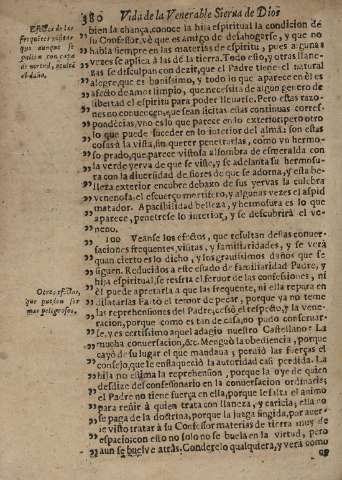 380 Vida de la Venerable Sierva de Dios
bien la chança, conoce la hija espiritual la condicion de
su Confessor, vè que es amigo de desahogarse, y que no
habla siempre en las materias de espiritu, pues algunas
vezes se aplica à las de la tierra. Todo esto, y otras llane-
zas se disculpan con dezir, que el Padre tiene el natural
alegre, que es bonissimo, y todo lo que aparece en èl es
efecto de amor limpio, que necessita de algun genero de
libertad el espiritu para poder llevarse. Pero estas razo-
nes no convencen, que sean licitas ellas continuas corres-
pondēcias, vno es lo que parece en lo exterior, pero otro
lo que puede suceder en lo interior del alma: son estas
cosas à la vista, sin querer penetrarlas, como vn hermo-
so prado, que parece vistosa alfombra de esmeralda con
la verde yerva de que se viste, y se adelanta su hermosu-
ra con la diversidad de flores de que se adorna, y esta be-
lleza exterior encubre debaxo de sus yervas la culebra
venenosa, el escuerço mortifero, y algunas vezes el aspid
matador. Apacibilidad belleza, y hermosura es lo que
aparece, penetrese lo interior, y se descubrirà el ve-
neno.
100 Veanse los efectos, que resultan destas conver-
saciones frequentes, visitas, y familiaridades, y se verà
quan cierto es lo dicho, y los gravissimos daños que se
siguen. Reducidos a este estado de familiaridad Padre, y
hija espiritual, se resfria el fervor de las confessiones, ni
èl puede apretarla a que las frequente, ni ella repara en
dilatarlas Faltò el temor de pecar, porque ya no teme
las reprehensiones del Padre, cessò el respecto, y la vene-
racion, porque como es tan de casa, no pudo conservar-
se, y es certissimo aquel adagio nuestro Castellano: La
mucha conversacion, &c. Menguò la obediencia, porque
cayò de su lugar el que mandava; perdiò las fuerças el
consejo, que le enflaqueciò la autoridad casi perdida. La
hija no estima la reprehension, porque la oye de quien
desdize del confessonario en la conversacion ordinaria;
el Padre no tiene fuerça en ella, porque le falta el animo
para reñir à quien trata con llaneza, y caricia; ella no
se paga de la doctrina, porque la juzga fingida, por aver-
le visto tratar à su Confessor materias de tierra muy de
espacio; con esto no solo no se buela en la virtud, pero
aun se buelve atràs. Considerelo qualquiera, y verà como
Efectos de las
frequētes visitas
que aunque se
palien con capa
de virtud, oculta
el daño.
Otros efectos,
que pueden ser
mas peligrosos.